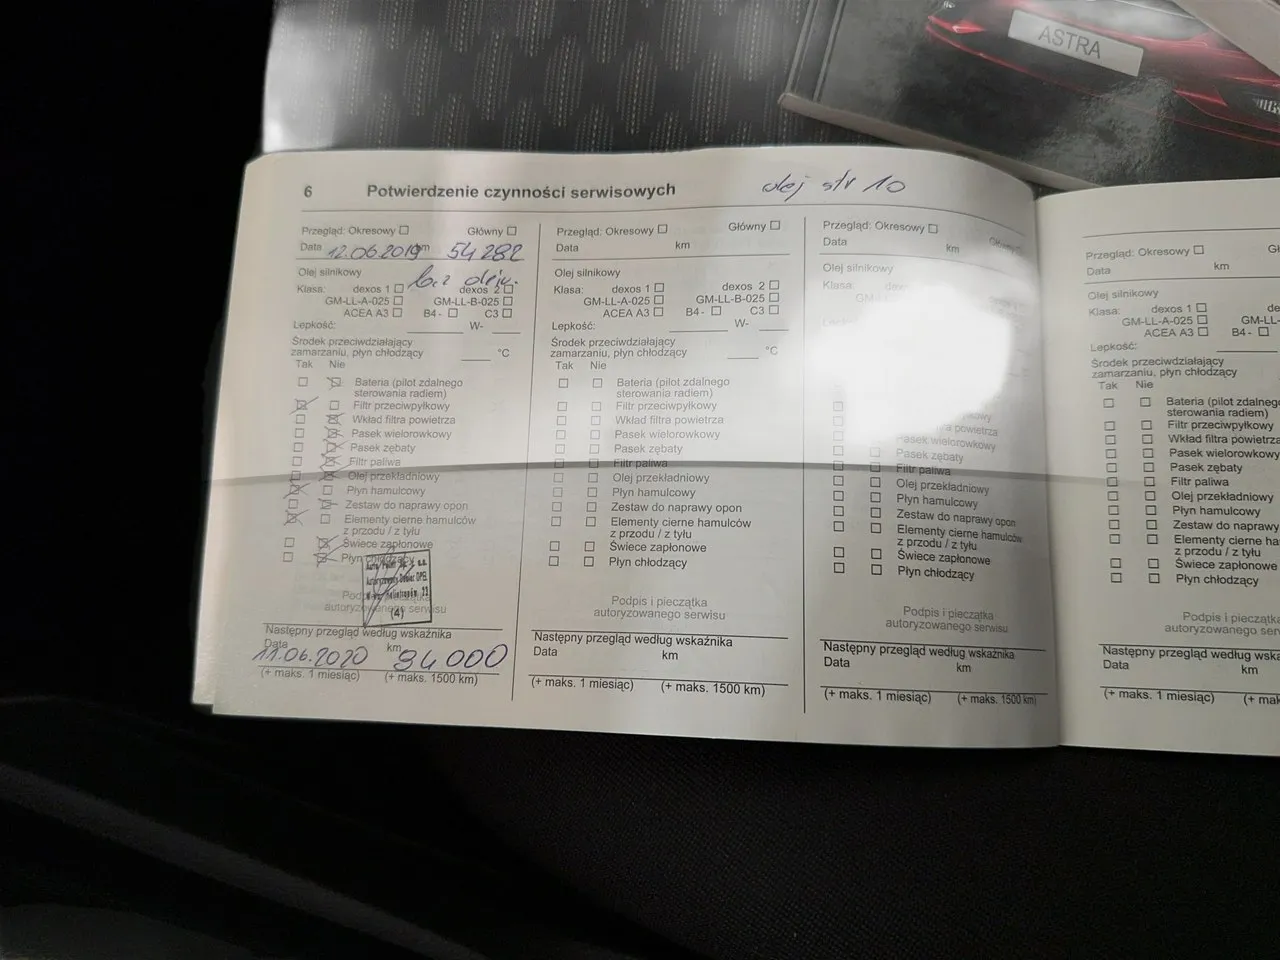 ASTRA
6 Potwierdzenie czynności serwisowych olej str 10
Przegląd: Okresowy ☐ Główny ☐
Data 12.06.2019 km 54 282
Olej silnikowy bez oleju.
Klasa: dexos 1 ☐ dexos 2 ☐
GM-LL-A-025 ☐ GM-LL-B-025 ☐
ACEA A3 ☐ B4- ☐ C3 ☐
Lepkość: W-
Środek przeciwdziałający
zamarzaniu, płyn chłodzący °C
Tak Nie
Bateria (pilot zdalnego
sterowania radiem)
Filtr przeciwpyłkowy
Wkład filtra powietrza
Pasek wielorowkowy
Pasek zębaty
Filtr paliwa
Olej przekładniowy
Płyn hamulcowy
Zestaw do naprawy opon
Elementy cierne hamulców
z przodu / z tyłu
Świece zapłonowe
Płyn chłodzący
OPEL
(4)
Podpis i pieczątka
autoryzowanego serwisu
Następny przegląd według wskaźnika
Data km
11.06.2020 84 000
(+ maks. 1 miesiąc) (+ maks. 1500 km)
Przegląd: Okresowy ☐ Główny ☐
Data km
Olej silnikowy
Klasa: dexos 1 ☐ dexos 2 ☐
GM-LL-A-025 ☐ GM-LL-B-025 ☐
ACEA A3 ☐ B4- ☐ C3 ☐
Lepkość: W-
Środek przeciwdziałający
zamarzaniu, płyn chłodzący °C
Tak Nie
Bateria (pilot zdalnego
sterowania radiem)
Filtr przeciwpyłkowy
Wkład filtra powietrza
Pasek wielorowkowy
Pasek zębaty
Filtr paliwa
Olej przekładniowy
Płyn hamulcowy
Zestaw do naprawy opon
Elementy cierne hamulców
z przodu / z tyłu
Świece zapłonowe
Płyn chłodzący
Podpis i pieczątka
autoryzowanego serwisu
Następny przegląd według wskaźnika
Data km
(+ maks. 1 miesiąc) (+ maks. 1500 km)
Przegląd: Okresowy ☐ Główny
Data km
Olej silnikowy
Klasa:
GM-LL
powietrza
Pasek wielorowkowy
Pasek zębaty
Filtr paliwa
Olej przekładniowy
Płyn hamulcowy
Zestaw do naprawy opon
Elementy cierne hamulców
z przodu / z tyłu
Świece zapłonowe
Płyn chłodzący
Podpis i pieczątka
autoryzowanego serwisu
Następny przegląd według wskaźnika
Data km
(+ maks. 1 miesiąc) (+ maks. 1500 km)
Przegląd: Okresowy ☐
Data km
Olej silnikowy
Klasa: dexos 1 ☐
GM-LL-A-025 ☐ GM-LL-
ACEA A3 ☐ B4- ☐
Lepkość:
Środek przeciwdziałający
zamarzaniu, płyn chłodzący
Tak Nie
Bateria (pilot zdalneg
sterowania radiem)
Filtr przeciwpyłkowy
Wkład filtra powietrza
Pasek wielorowkowy
Pasek zębaty
Filtr paliwa
Olej przekładniowy
Płyn hamulcowy
Zestaw do naprawy
Elementy cierne ham
z przodu / z tyłu
Świece zapłonowe
Płyn chłodzący
Podpis i pieczątka
autoryzowanego ser
Następny przegląd według wskaźnika
Data km
(+ maks. 1 miesiąc) (+ mak